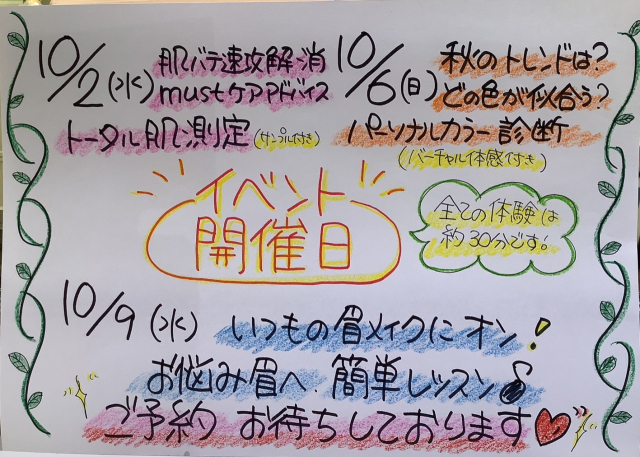 10/2(水) 肌バテ速攻解消
mustケアアドバイス
トータル肌測定(サンプル付き)
10/6(日) 秋のトレンドは?
どの色が似合う?
パーソナルカラー診断
(バーチャル体感付き)
イベント
開催日
全ての体験は
約30分です。
10/9(水) いつもの眉メイクにオン!
お悩み眉へ簡単レッスン
ご予約 お待ちしております